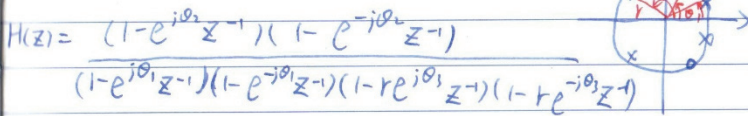 r θ₁
H(z) = (1-e^{jθ₂}z⁻¹)(1-e^{-jθ₂}z⁻¹)
(1-e^{jθ₁}z⁻¹)(1-e^{-jθ₁}z⁻¹)(1-re^{jθ₃}z⁻¹)(1-re^{-jθ₃}z⁻¹)